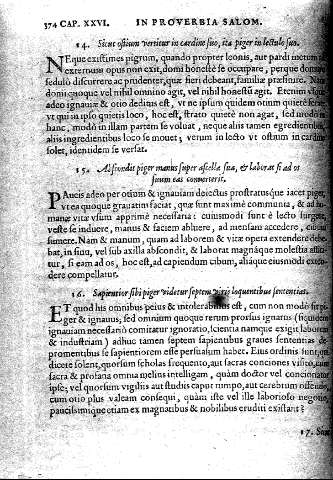 374 CAP. XXVI. IN PROVERBIA SALOM.
14. Sicut ostium vertitur in cardine suo, ita piger in lectulo suo.
NEque existimes pigrum, quando propter leonis, aut pardi metum
externum opus non exit, domi honestè se occupare, perque domum
sedulò discurrere ac prudenter, quæ fieri debeant, familiæ præfinire. Nam
domi quoque vel nihil omnino agit, vel nihil honestū agit. Etenim vsque
adeo ignauiæ & otio deditus est, vt ne ipsum quidem otium quietè ferat,
vt qui in ipso quietis loco, hoc est, strato quietè non agat, sed modò in
hanc, modò in illam partem se voluat, neque aliis tamen egredientibus,
aliis ingredientibus loco se mouet; verum in lecto vt ostium in cardine
solet, identidem se versat.
15. Abscondit piger manus super ascella sua, & laborat si ad os
suum eas converterit.
PAucis adeo per otium & ignauiam deiectus prostratusque iacet piger,
vt ea quoque grauatim faciat, quæ sunt maximè communia, & ad humanæ
vitæ vsum apprimè necessaria: cuiusmodi sunt è lecto surgere,
veste se induere, manus & faciem abluere, ad mensam accedere, cibum
sumere. Nam & manum, quam ad laborem & vitæ opera extendere debebat,
in sinu, vel sub axilla abscondit, & laborat magnáque molestia afficitur,
si eam ad os, hoc est, ad capiendum cibum, aliáque eiusmodi extendere
compellatur.
16. Sapientior sibi piger videtur septem viris loquentibus sententias.
ET quod his omnibus peius & intolerabilius est, cum non modò sit piger
& ignauus, sed omnium quoque rerum prorsus ignarus (siquidem
ignauiam necessariò comitatur ignoratio, scientia namque exigit laborem
& industriam) adhuc tamen septem sapientibus graues sententias depromentibus
se sapientiorem esse persuasum habet. Eius ordinis sunt, qui
dicere solent, quorsum scholas frequento, aut sacras conciones visito, cum
sacra & profana omnia melius intelligam, quàm doctor vel concionator
ipse; vel quorsum vigiliis aut studiis caput rumpo, aut cerebrum offendo,
cum otio plus valeam consequi, quàm iste vel ille laborioso negotio,
paucissimique etiam ex magnatibus & nobilibus eruditi existant?
17. Sicut